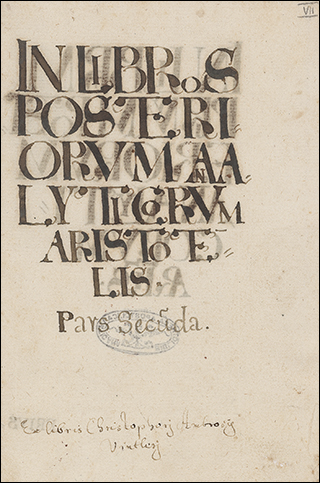 VII
IN LIBROS
POSTERI
ORVM ANA
LYTICORVM
ARISTOTE=
LIS.
Pars Secũda.
Ex libris Christophorj Antonij